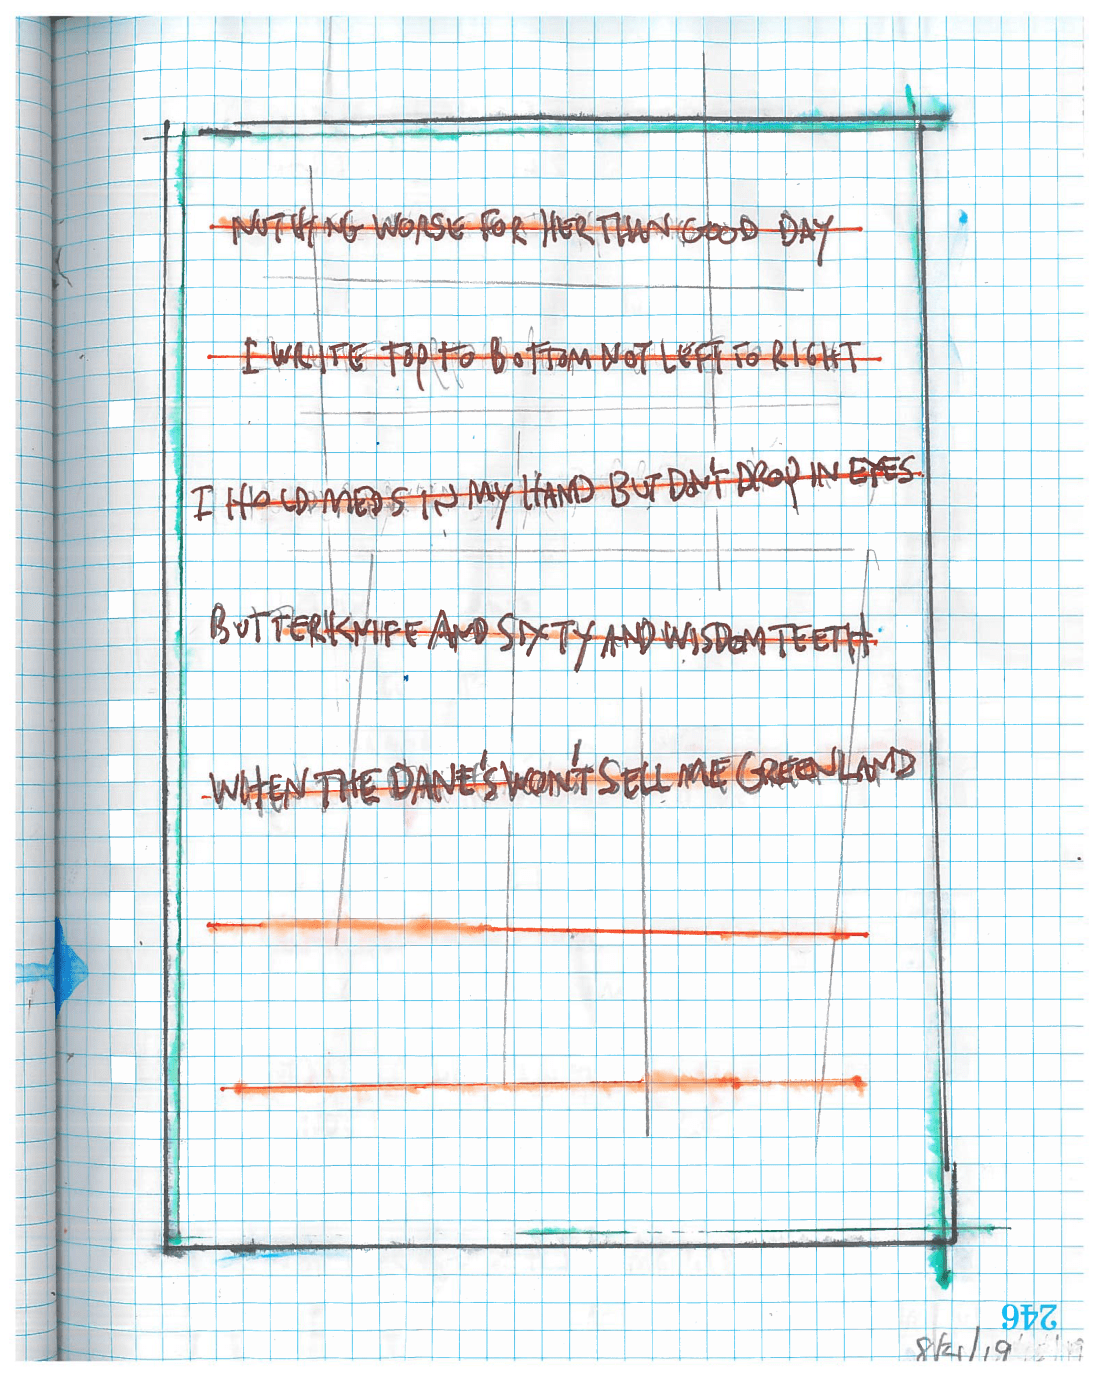 NOTHING WORSE FOR HER THAN GOOD DAY
I WRITE TOP TO BOTTOM NOT LEFT TO RIGHT
I HOLD MEDS IN MY HAND BUT DON'T DROP IN EYES
BUTTERKNIFE AND SIXTY AND WISDOM TEETH
WHEN THE DANE'S WON'T SELL ME GREENLAND
246